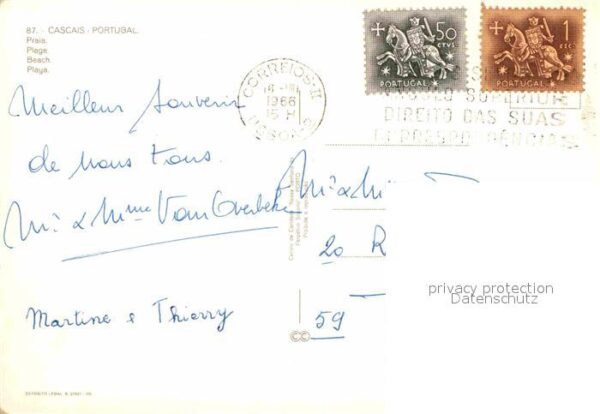 87. - CASCAIS - PORTUGAL
Praia.
Plage.
Beach.
Playa.
50
CTVS.
PORTUGAL
1
ESC.
PORTUGAL
CORREIOS-II
1966
15 H
DIREITO DAS SUAS
CORRESPONDÊNCIAS
Meilleur Souvenir
de nous tous.
Mr & Mme Van Overbeke
Mr & M
20 R
59
Martine & Thierry
privacy protection
Datenschutz